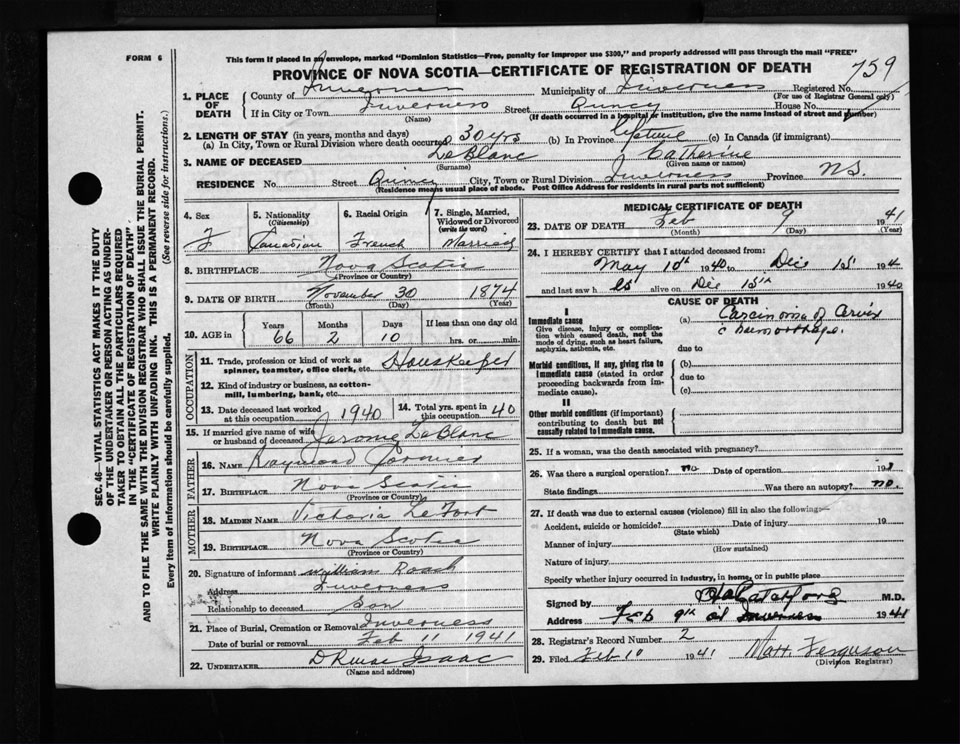 FORM 6
This form if placed in an envelope, marked "Dominion Statistics—Free, penalty for improper use $300," and properly addressed will pass through the mail "FREE"
PROVINCE OF NOVA SCOTIA—CERTIFICATE OF REGISTRATION OF DEATH
759
1. PLACE OF DEATH
County of Inverness Municipality of Inverness Registered No.
(For use of Registrar General only)
If in City or Town Inverness Street Quincy House No.
(Name) (If death occurred in a hospital or institution, give the name instead of street and number)
2. LENGTH OF STAY (in years, months and days)
(a) In City, Town or Rural Division where death occurred 30 yrs (b) In Province Lifetime (c) In Canada (if immigrant)
3. NAME OF DECEASED LeBlanc Catherine
(Surname) (Given name or names)
RESIDENCE No. Street Quincy City, Town or Rural Division Inverness Province N.S.
(Residence means usual place of abode. Post Office Address for residents in rural parts not sufficient)
4. Sex F
5. Nationality (Citizenship) Canadian
6. Racial Origin French
7. Single, Married, Widowed or Divorced (write the word) Married
8. BIRTHPLACE Nova Scotia
(Province or Country)
9. DATE OF BIRTH November 30 1874
(Month) (Day) (Year)
10. AGE in Years Months Days If less than one day
66 2 10 hrs. or min.
OCCUPATION
11. Trade, profession or kind of work as spinner, teamster, office clerk, etc. Housekeeper
12. Kind of industry or business, as cotton-mill, lumbering, bank, etc.
13. Date deceased last worked at this occupation 1940
14. Total yrs. spent in this occupation 40
15. If married give name of wife or husband of deceased Jerome LeBlanc
FATHER
16. NAME Raymond Cormier
17. BIRTHPLACE Nova Scotia
(Province or Country)
MOTHER
18. MAIDEN NAME Victoria LeFort
19. BIRTHPLACE Nova Scotia
(Province or Country)
20. Signature of informant William Roach
Address Inverness
Relationship to deceased Son
21. Place of Burial, Cremation or Removal Inverness
Date of burial or removal Feb 11 1941
22. UNDERTAKER Isaac
(Name and address)
MEDICAL CERTIFICATE OF DEATH
23. DATE OF DEATH Feb 9 1941
(Month) (Day) (Year)
24. I HEREBY CERTIFY that I attended deceased from:
May 10th 1940 to Dec 15 194
and last saw h er alive on Dec 15th 1940
CAUSE OF DEATH
I
Immediate cause
Give disease, injury or complication which caused death, not the mode of dying, such as heart failure, asphyxia, asthenia, etc.
(a) Carcinoma of Cervix
c haemorrhage.
due to
Morbid conditions, if any, giving rise to immediate cause (stated in order proceeding backwards from immediate cause).
(b)
due to
(c)
II
Other morbid conditions (if important) contributing to death but not causally related to immediate cause.
25. If a woman, was the death associated with pregnancy?
26. Was there a surgical operation? no Date of operation 19
State findings Was there an autopsy? no.
27. If death was due to external causes (violence) fill in also the following:—
Accident, suicide or homicide? Date of injury 19
(State which)
Manner of injury
(How sustained)
Nature of injury
Specify whether injury occurred in industry, in home, or in public place
Signed by M.D.
Address Feb 9th at Inverness 1941
28. Registrar's Record Number 2
29. Filed Feb 10 1941 Matt Ferguson
(Division Registrar)
SEC. 46—VITAL STATISTICS ACT MAKES IT THE DUTY
OF THE UNDERTAKER OR PERSON ACTING AS UNDER-
TAKER TO OBTAIN ALL THE PARTICULARS REQUIRED
IN THE "CERTIFICATE OF REGISTRATION OF DEATH"
AND TO FILE THE SAME WITH THE DIVISION REGISTRAR WHO SHALL ISSUE THE BURIAL PERMIT.
WRITE PLAINLY WITH UNFADING INK. THIS IS A PERMANENT RECORD.
Every item of information should be carefully supplied. (See reverse side for instructions.)